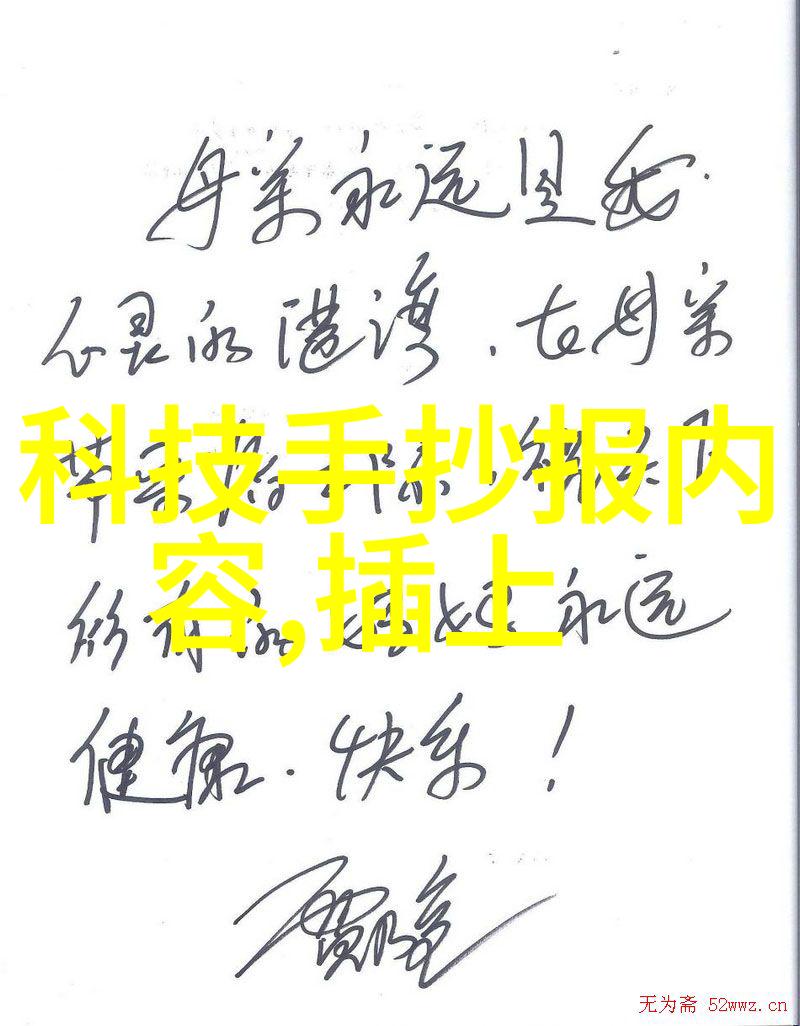 母亲永远是我
心灵的港湾，在母亲
科技手抄报内
节
容,插上
所有的 妈永远
健康、快乐！
无为斋 52wwz.cn